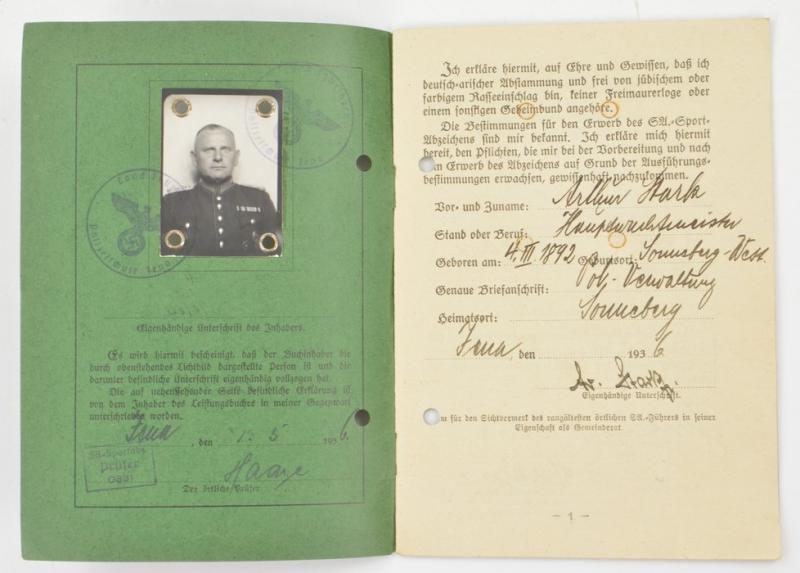 Eigenhändige Unterschrift des Inhabers.
Es wird hiermit bescheinigt, daß der Buchinhaber die
durch obenstehendes Lichtbild dargestellte Person ist und die
darunter befindliche Unterschrift eigenhändig vollzogen hat.
Die auf nebenstehender Seite befindliche Erklärung ist
von dem Inhaber des Leistungsbuches in meiner Gegenwart
unterschrieben worden.
Jena, den 5 1936
SA-Sportabz.
Prüfer
Haaze
Der örtliche Prüfer
Ich erkläre hiermit, auf Ehre und Gewissen, daß ich
deutsch-arischer Abstammung und frei von jüdischem oder
farbigem Rasseeinschlag bin, keiner Freimaurerloge oder
einem sonstigen Geheimbund angehöre.
Die Bestimmungen für den Erwerb des SA.-Sport-
Abzeichens sind mir bekannt. Ich erkläre mich hiermit
bereit, den Pflichten, die mir bei der Vorbereitung und nach
dem Erwerb des Abzeichens auf Grund der Ausführungs-
bestimmungen erwachsen, gewissenhaft nachzukommen.
Vor- und Zuname: Arthur Stark
Stand oder Beruf: Hauptwachtmeister
Geboren am: 4. III. 1892 Geburtsort: Sonneberg-West.
Genaue Briefanschrift: Pol.-Verwaltung
Heimatsort: Sonneberg
Jena, den 1936
Ar. Stark.
Eigenhändige Unterschrift.
für den Sichtvermerk des rangältesten örtlichen SA.-Führers in seiner
Eigenschaft als Gemeinderat.
– 1 –